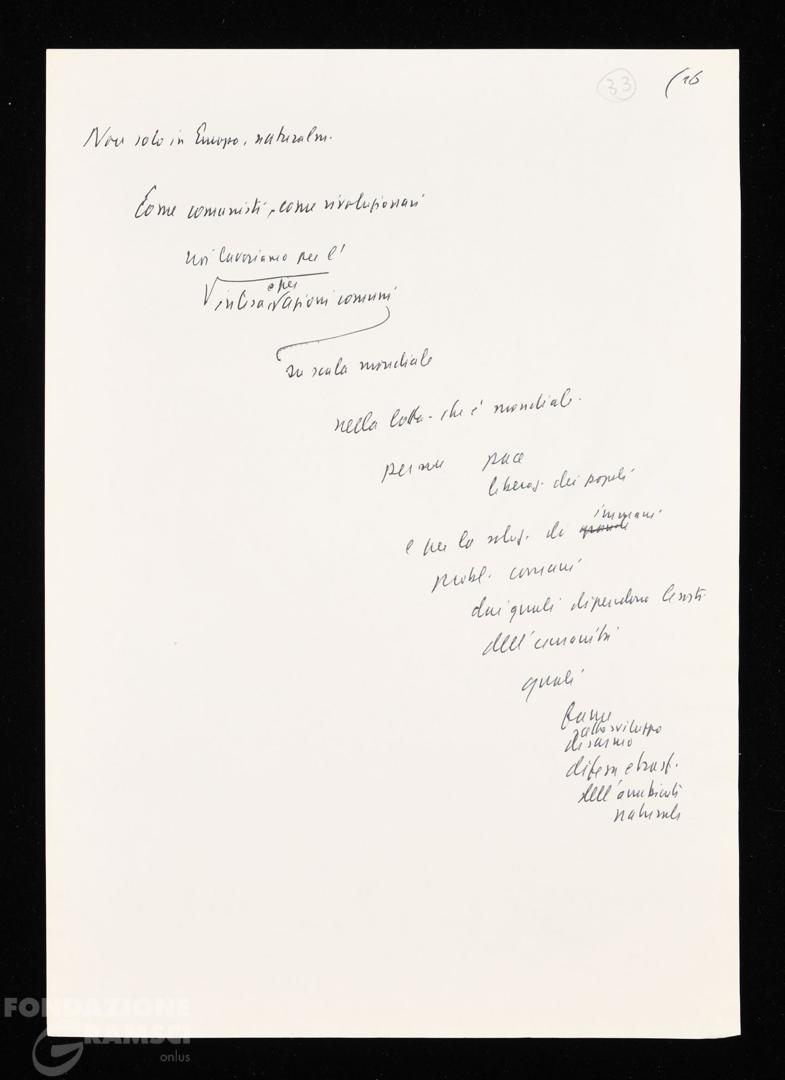 33 (16
Non solo in Europa, naturalm.
Come comunisti, come rivoluzionari
noi lavoriamo per l'
intesa e per azioni comuni
su scala mondiale
nella lotta - che è mondiale -
per pace
liberaz. dei popoli
e per la soluz. di grandi immani
probl. comuni
dai quali dipendono le sorti
dell'umanità
quali
fame
sottosviluppo
disarmo
difesa e trasf.
dell'ambiente
naturale
FONDAZIONE
GRAMSCI
onlus